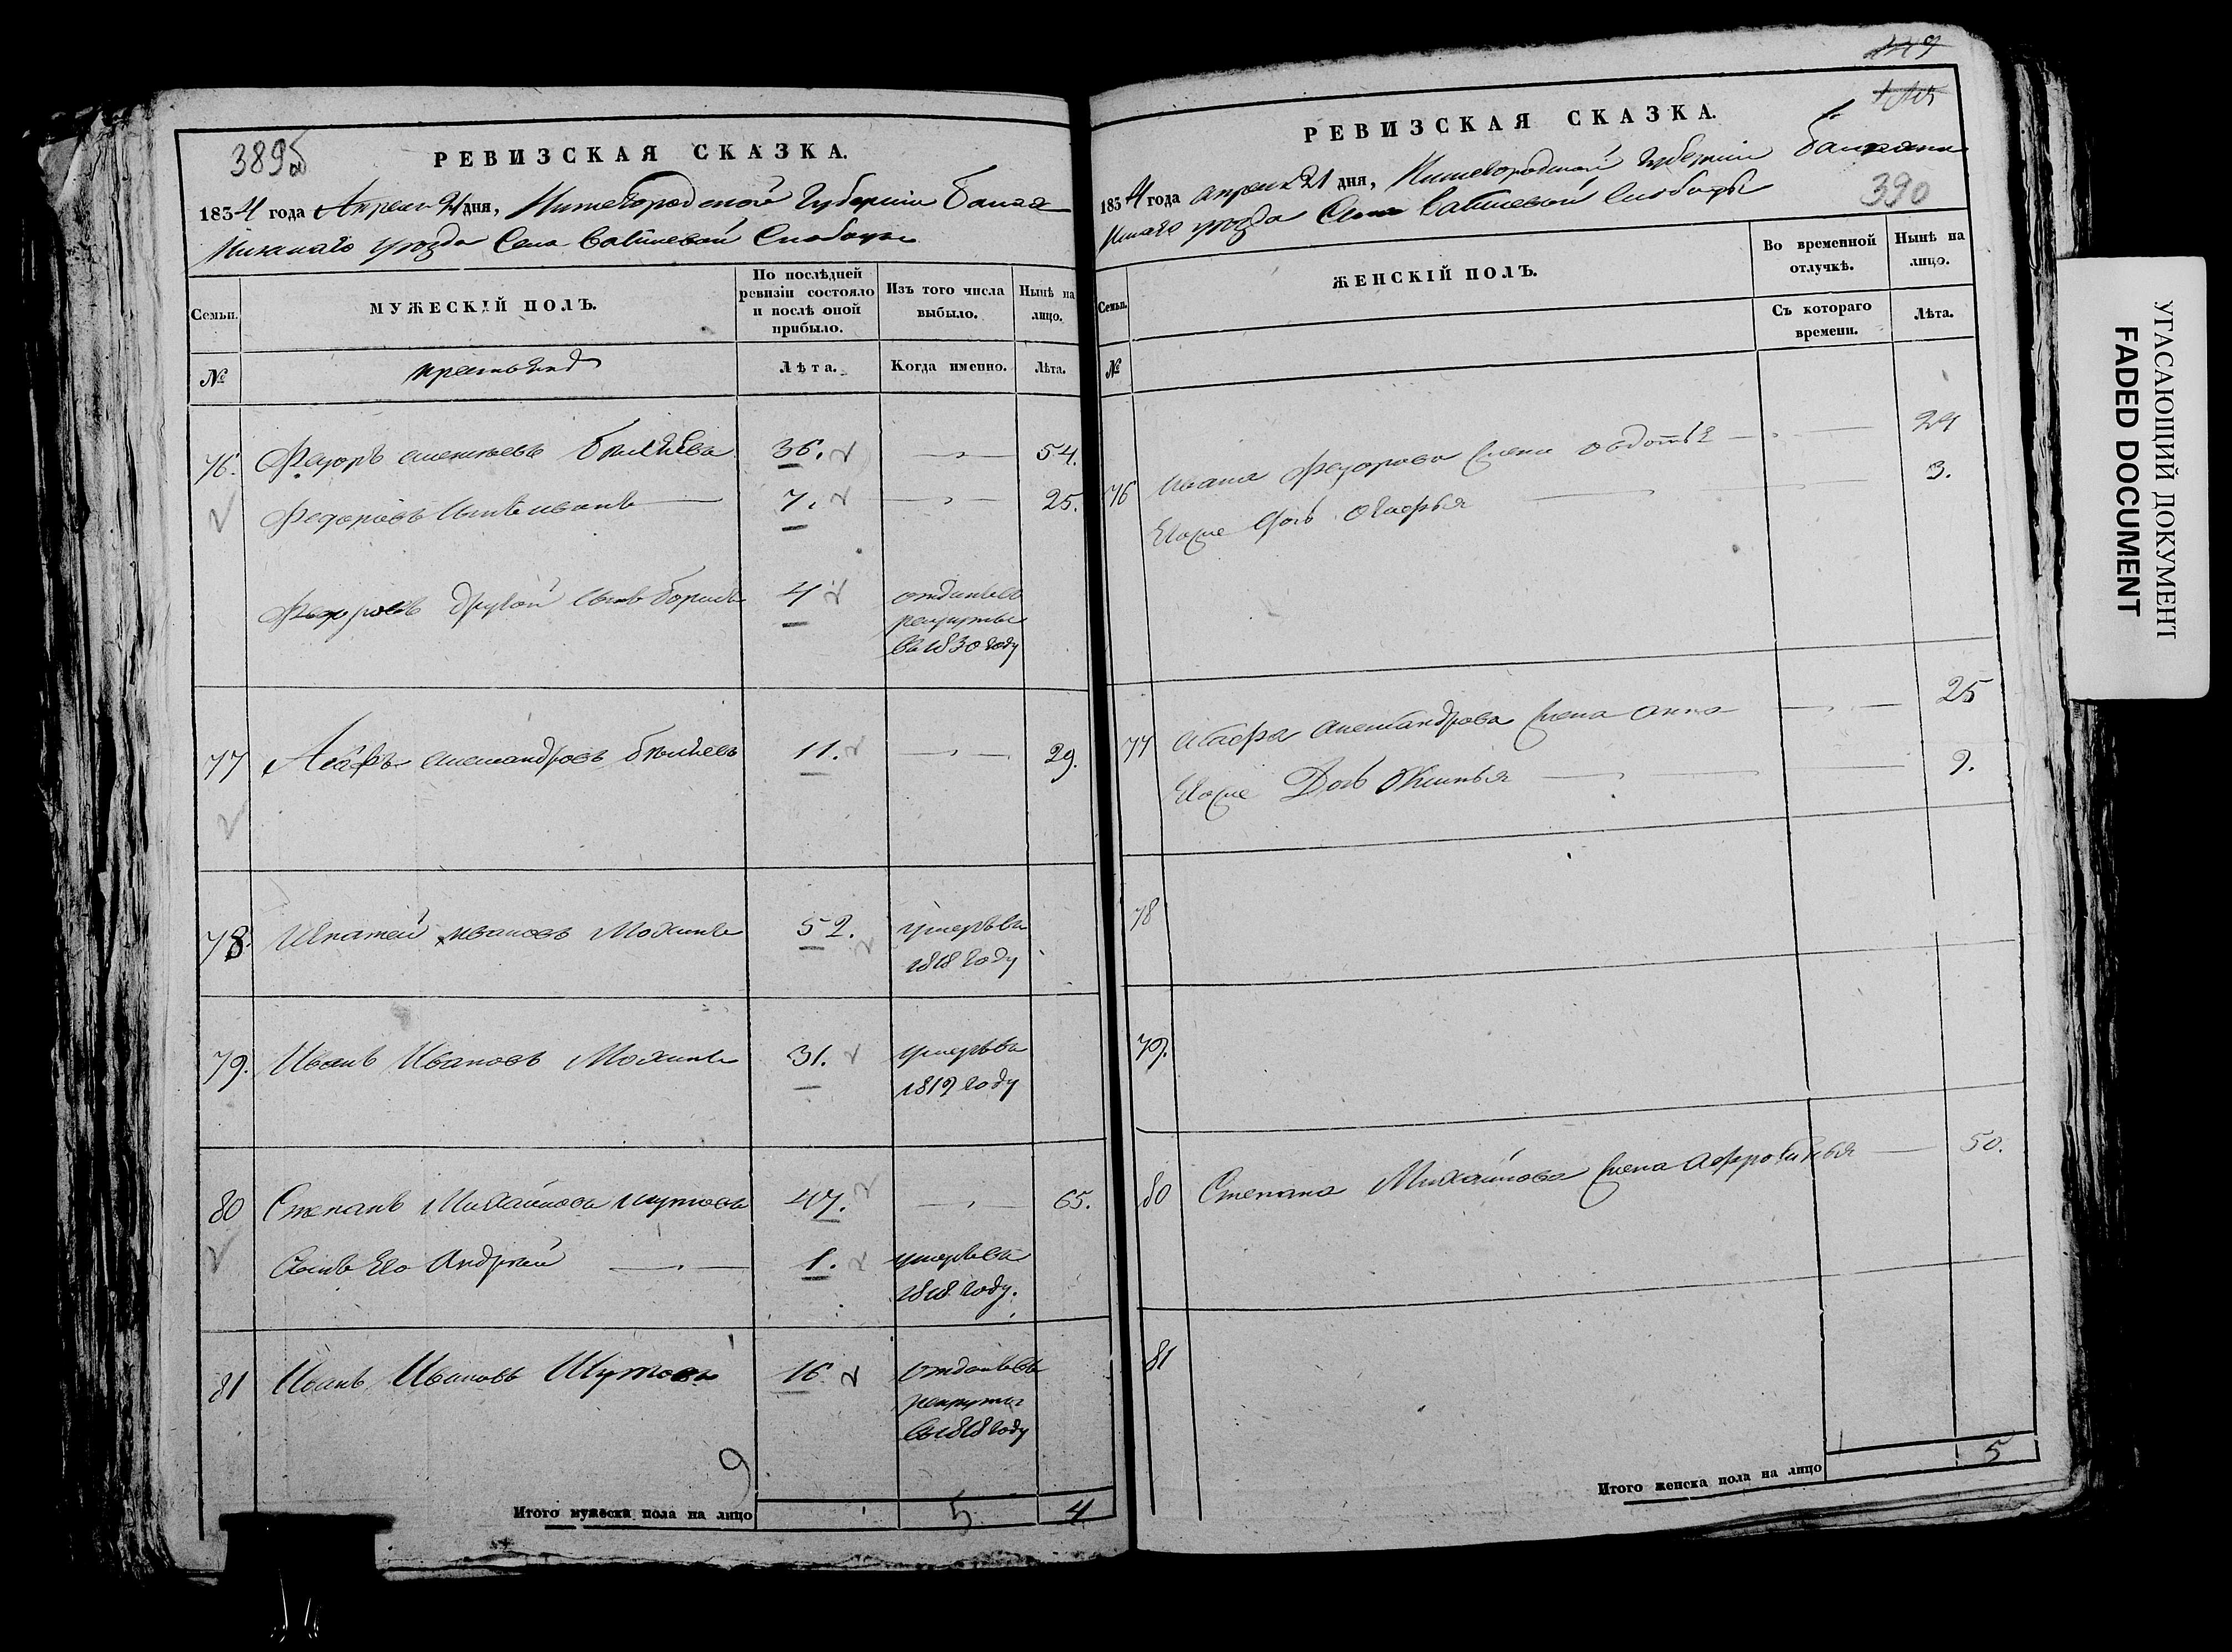 389б
РЕВИЗСКАЯ СКАЗКА.
1834 года Апреля 21 дня, Нижегородской Губернiи Балах
нинскаго уезда Села Слободы
Семьи.
МУЖЕСКIЙ ПОЛЪ.
По послѣдней ревизiи состояло и послѣ оной прибыло.
Изъ того числа выбыло.
Нынѣ на лицо.
№
Лѣта.
Когда именно.
Лѣта.
76. Федоръ 36. 54.
Федоровъ сынъ Иванъ 7. 25.
Федоровъ другой сынъ Борисъ 4 отданъ въ
рекруты
въ 1830 году
77 Александровъ 11. 29.
78. Ипатей Ивановъ Мохинъ 52. умеръ въ
1818 году
79. Иванъ Ивановъ Мохинъ 31. умеръ въ
1819 году
80 Степанъ Михайловъ Шутовъ 47. 65.
Сынъ Его Андрей 1. умеръ въ
1818 году.
81 Иванъ Ивановъ Шутовъ 16 Отданъ въ
рекруты
въ 1818 году
9
Итого мужеска пола на лицо 5 4
149
РЕВИЗСКАЯ СКАЗКА.
1834 года апреля 21 дня, Нижегородской Губернiи Балахни
нскаго уезда Села Слободы
390
Семьи.
ЖЕНСКIЙ ПОЛЪ.
Во временной отлучкѣ.
Нынѣ на лицо.
№
Съ котораго времени.
Лѣта.
76 Ивана Федорова жена Овдотья 24
Егоже дочь 3.
77 Александрова жена Анна 25
Егоже Дочь 9.
78
79.
80 Степана Михайлова жена 50.
81
Итого женска пола на лицо 5
УГАСАЮЩИЙ ДОКУМЕНТ
FADED DOCUMENT